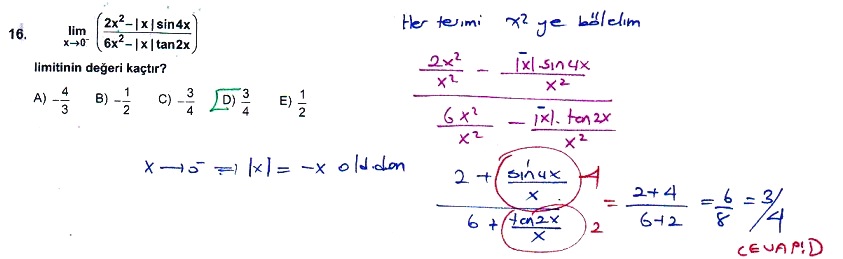 16. lim x→0⁻ ( (2x² – |x| sin4x) / (6x² – |x| tan2x) )
limitinin değeri kaçtır?
A) –4/3 B) –1/2 C) –3/4 D) 3/4 E) 1/2
x → 0⁻ ⇒ |x| = -x old.dan
Her terimi x² ye bölelim
(2x²/x² – |x|.sin4x/x²) / (6x²/x² – |x|.tan2x/x²)
(2 + sin4x/x) / (6 + tan2x/x) 4 2 = (2+4)/(6+2) = 6/8 = 3/4
CEVAP:D